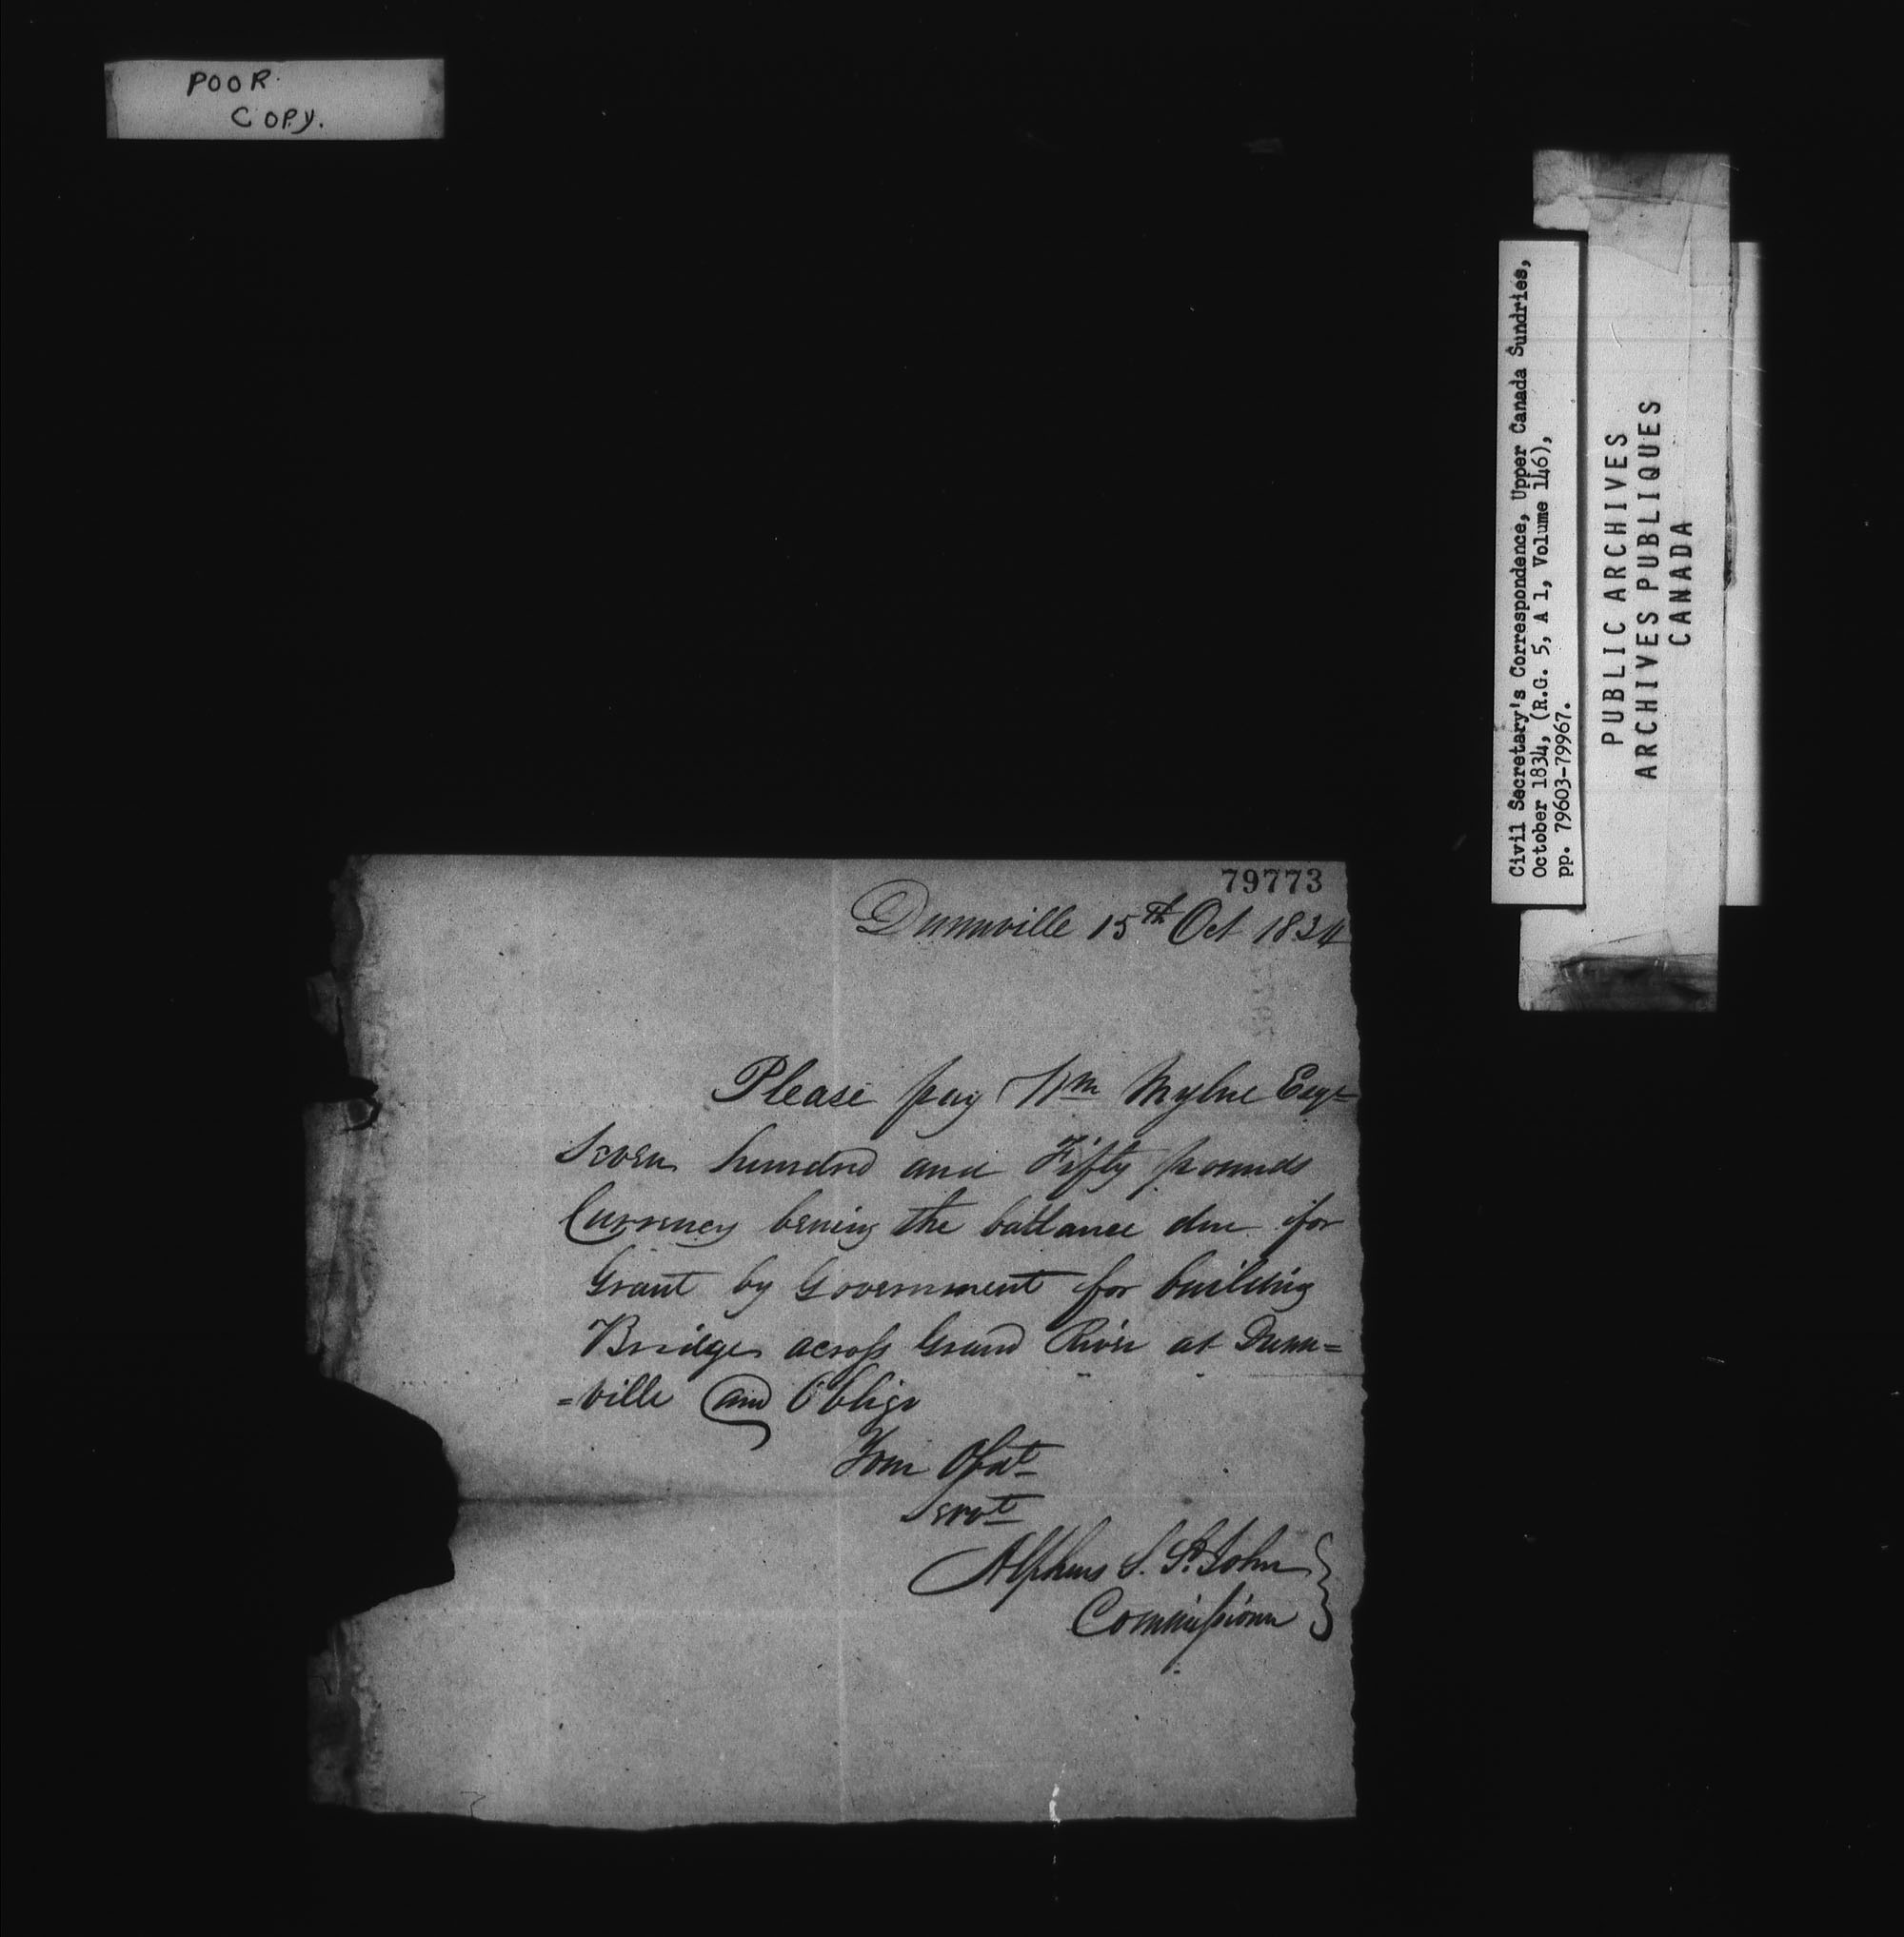 POOR
COPY.
Civil Secretary's Correspondence, Upper Canada Sundries,
October 1834, (R.G. 5, A 1, Volume 146),
pp. 79603-79967.
PUBLIC ARCHIVES
ARCHIVES PUBLIQUES
CANADA
79773
Dunnville 15th Oct 1834
Please pay Wm Mylne Esqr
Seven hundred and Fifty pounds
Currency being the ballance due for
Grant by Government for building
Bridge across Grand River at Dunn=
=ville and Oblige
Your Obdt
Servt
Alpheus S. St. John
Commissioner